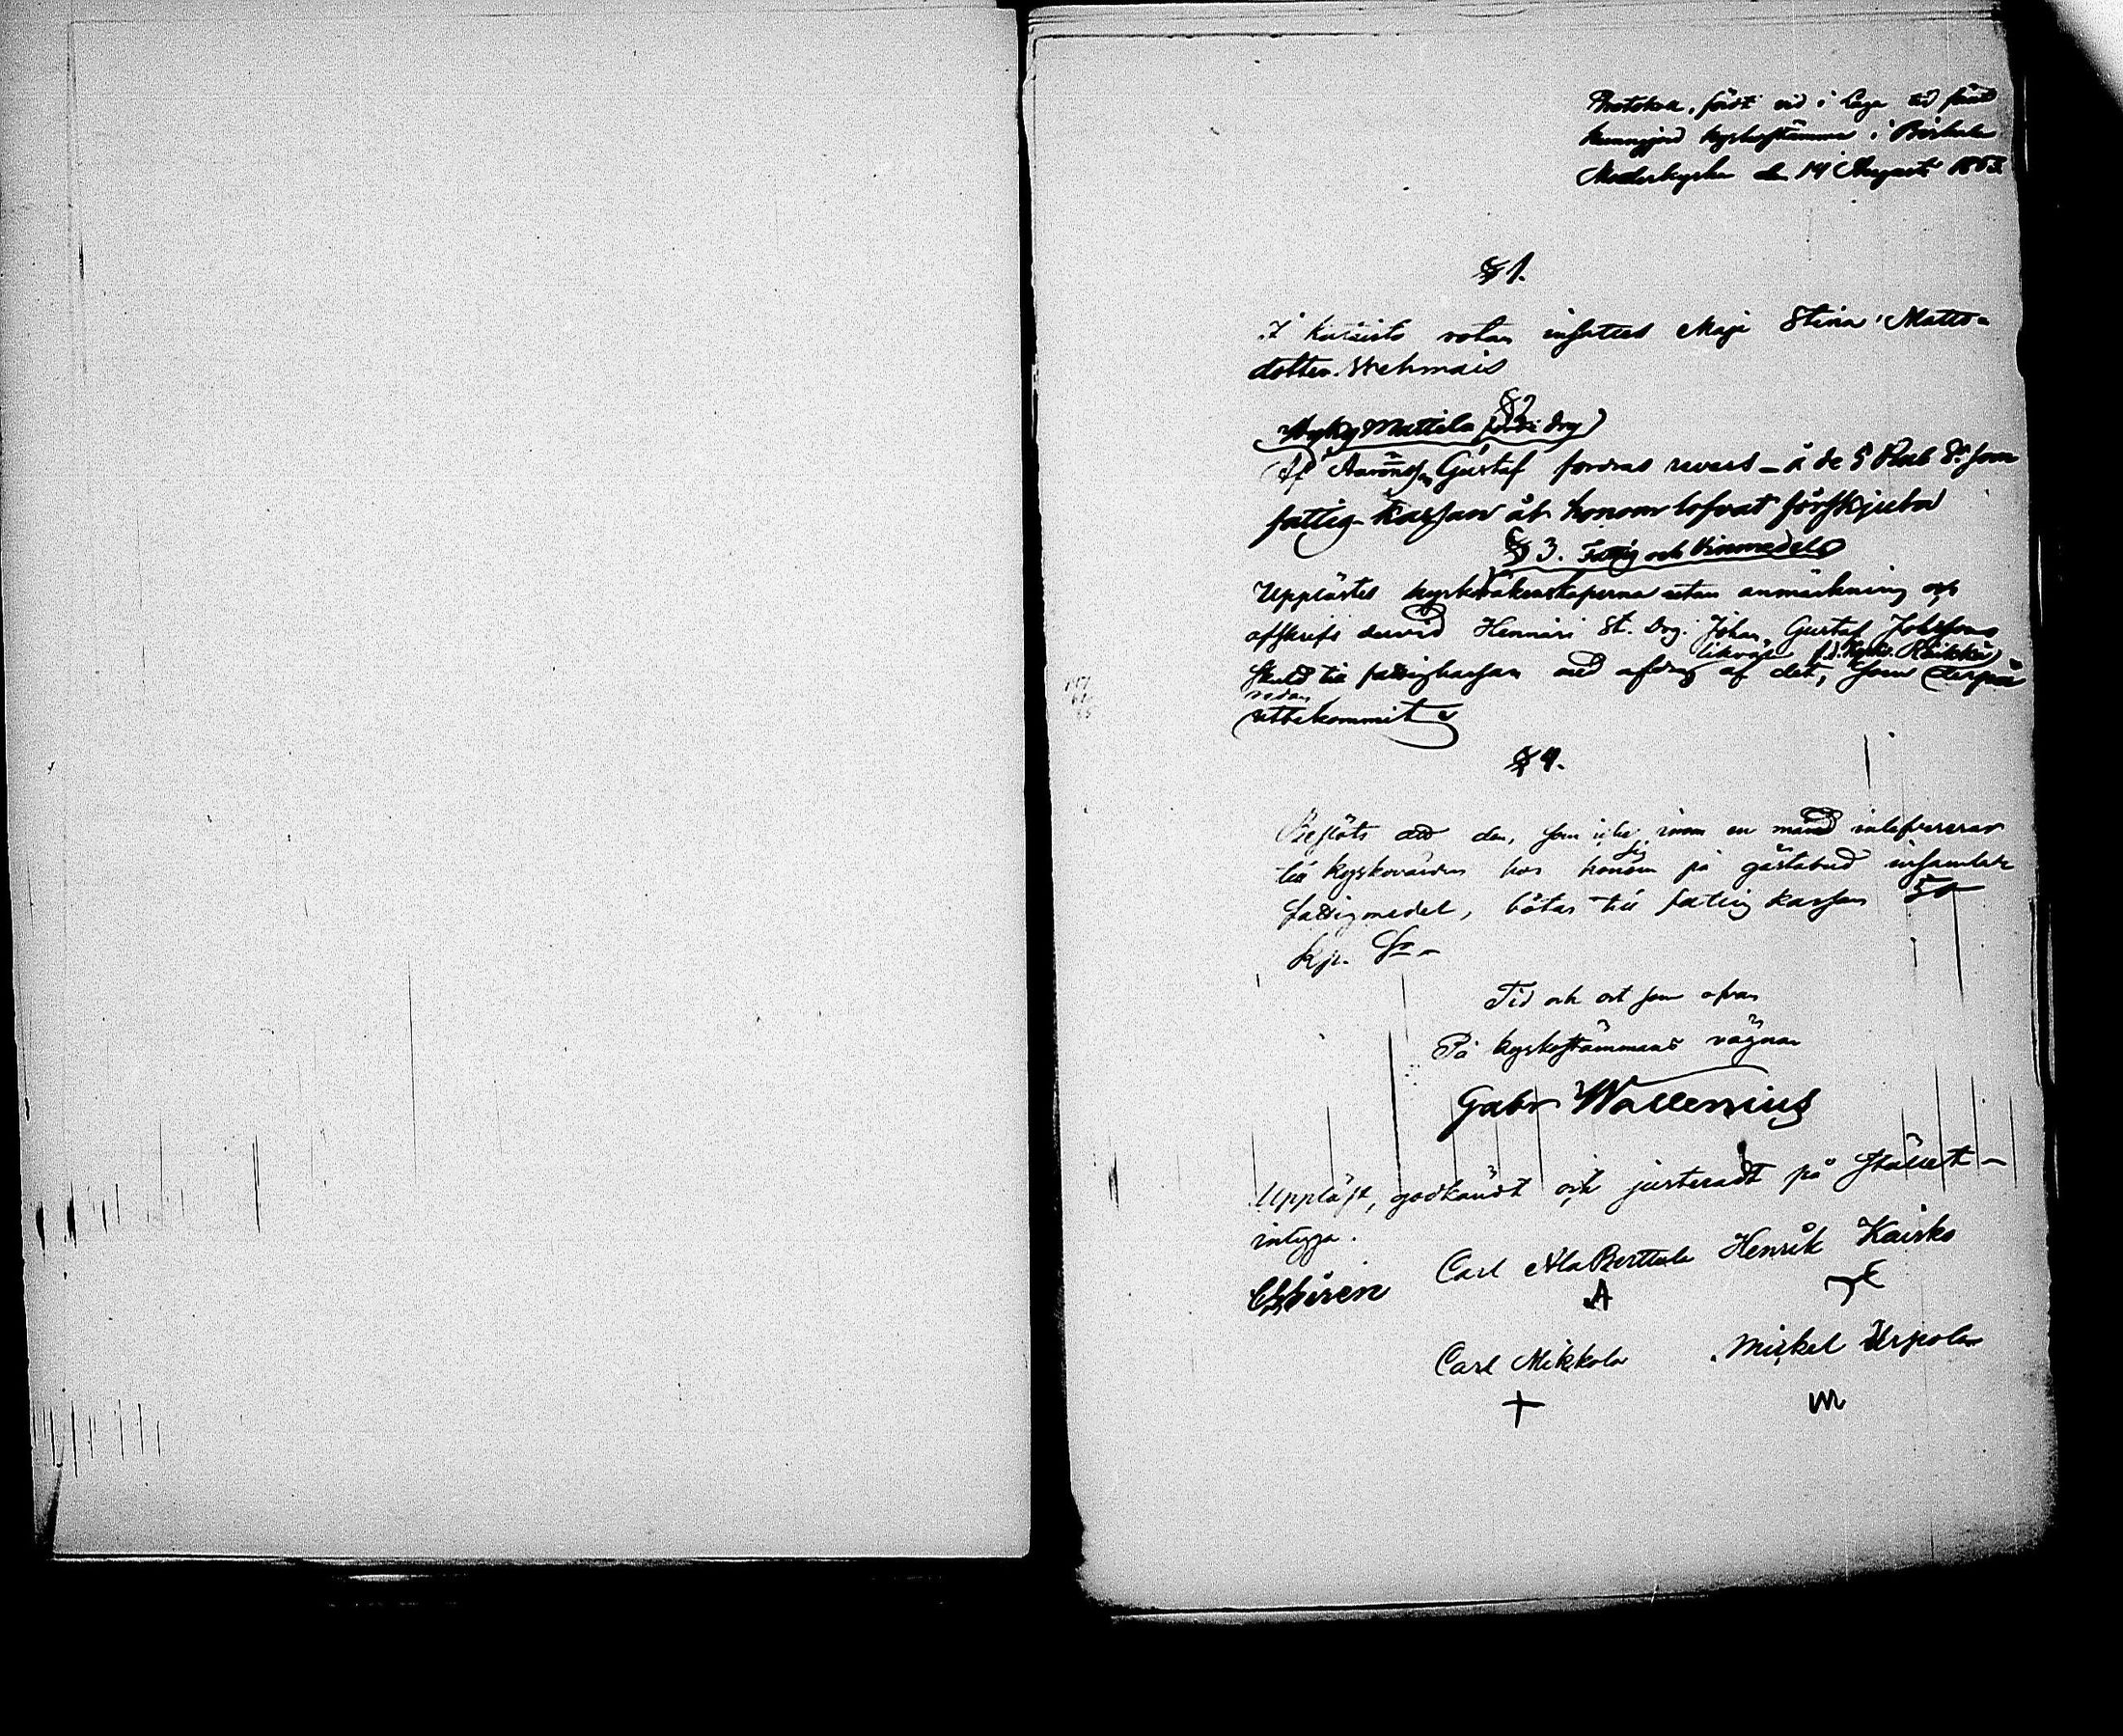 Protokoll, fördt vid i laga tid förut
kungjord kyrkostämma i Birkala
Moderkyrka den 14 Augusti 1853.
§ 1.
I rotan insattes Maja Stina Matts-
dotter Wehmais
§ 2
Mattila
Af Gustaf fordras revers å de 5 Rub Sr som
fattig-kassan åt honom lofvat förskjuta
§ 3. Fattig och Vinmedel
Upplästes kyrkoräkenskaperna utan anmärkning och
afskrefs dervid Hennäri St. Drg. Johan Gustaf Johssons
likväl
skuld till fattigkassan med afdrag af det, som derpå
redan
utbekommit
§ 4.
Beslöts att den, som icke inom en månad inlefvererar
till kyrkovärden hos honom på gästabud insamlade
fattigmedel, bötar till fattig kassan 50
kp. Sr
Tid och ort som ofvan
På kyrkostämmans vägnar
Gabr Wallenius
Uppläst, godkändt och justeradt på stället
intyga.
Carl AlaPerttula Henrik Kairko
A
Carl Mikkola Mickel Urpola
+ M